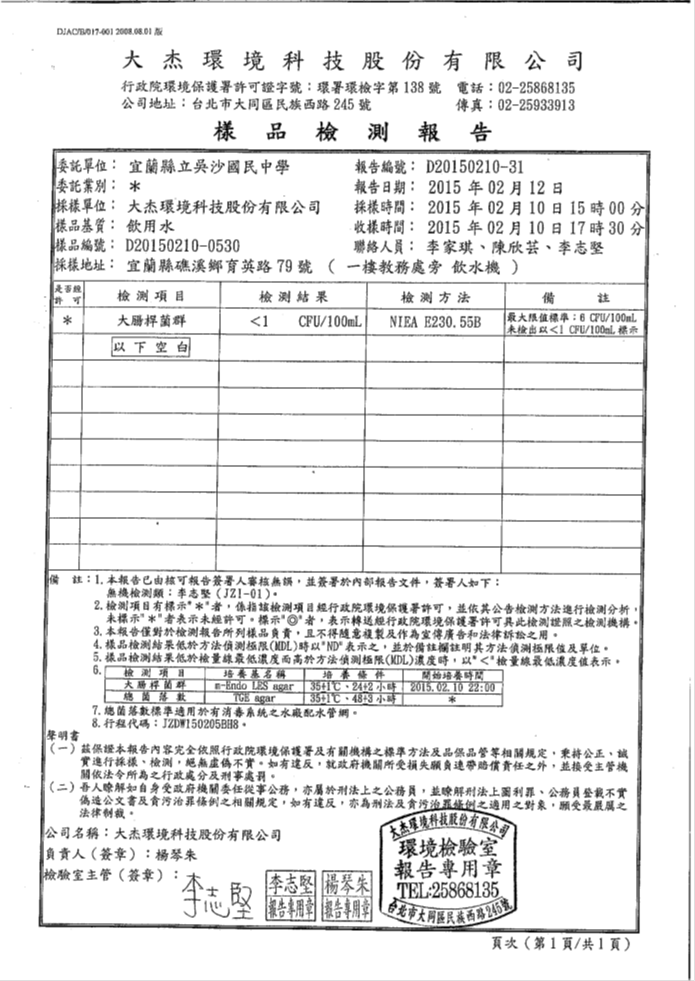 DJAC/B/017-001 2008.08.01 版
大杰環境科技股份有限公司
行政院環境保護署許可證字號：環署環檢字第 138 號 電話：02-25868135
公司地址：台北市大同區民族西路 245 號 傳真：02-25933913
樣品檢測報告
委託單位： 宜蘭縣立吳沙國民中學 報告編號： D20150210-31
委託業別： * 報告日期： 2015 年 02 月 12 日
採樣單位： 大杰環境科技股份有限公司 採樣時間： 2015 年 02 月 10 日 15 時 00 分
樣品基質： 飲用水 收樣時間： 2015 年 02 月 10 日 17 時 30 分
樣品編號： D20150210-0530 聯絡人員： 李家琪、陳欣芸、李志堅
採樣地址： 宜蘭縣礁溪鄉育英路 79 號 （ 一樓教務處旁 飲水機 ）
是否經許可 檢測項目 檢測結果 檢測方法 備 註
* 大腸桿菌群 <1 CFU/100mL NIEA E230.55B 最大限值標準：6 CFU/100mL
未檢出以<1 CFU/100mL 標示
以下空白
備 註：1.本報告已由核可報告簽署人審核無誤，並簽署於內部報告文件，簽署人如下：
無機檢測類：李志堅（JZI-01）。
2.檢測項目有標示"＊"者，係指該檢測項目經行政院環境保護署許可，並依其公告檢測方法進行檢測分析，
未標示"＊"者表示未經許可。標示"◎"者，表示轉送經行政院環境保護署許可具此檢測證照之檢測機構。
3.本報告僅對於檢測報告所列樣品負責，且不得隨意複製及作為宣傳廣告和法律訴訟之用。
4.樣品檢測結果低於方法偵測極限(MDL)時以"ND"表示之，並於備註欄註明其方法偵測極限值及單位。
5.樣品檢測結果低於檢量線最低濃度而高於方法偵測極限(MDL)濃度時，以"<"檢量線最低濃度值表示。
6. 檢測項目 培養基名稱 培養條件 開始培養時間
大腸桿菌群 m-Endo LES agar 35±1℃、24±2 小時 2015.02.10 22:00
總菌落數 TGE agar 35±1℃、48±3 小時 *
7.總菌落數標準適用於有消毒系統之水廠配水管網。
8.行程代碼：JZDW150205BH8。
聲明書
（一）茲保證本報告內容完全依照行政院環境保護署及有關機構之標準方法及品保品管等相關規定，秉持公正、誠
實進行採樣、檢測，絕無虛偽不實。如有違反，就政府機關所受損失願負連帶賠償責任之外，並接受主管機
關依法令所為之行政處分及刑事處罰。
（二）吾人瞭解如自身受政府機關委任從事公務，亦屬於刑法上之公務員，並瞭解刑法上圖利罪、公務員登載不實
偽造公文書及貪污治罪條例之相關規定，如有違反，亦為刑法及貪污治罪條例之適用之對象，願受最嚴厲之
法律制裁。
公司名稱：大杰環境科技股份有限公司
負責人（簽章）：楊琴朱
檢驗室主管（簽章）：
李志堅
李志堅
報告專用章
楊琴朱
報告專用章
大杰環境科技股份有限公司
環境檢驗室
報告專用章
TEL:25868135
台北市大同區民族西路245號
頁次（第 1 頁/共 1 頁）